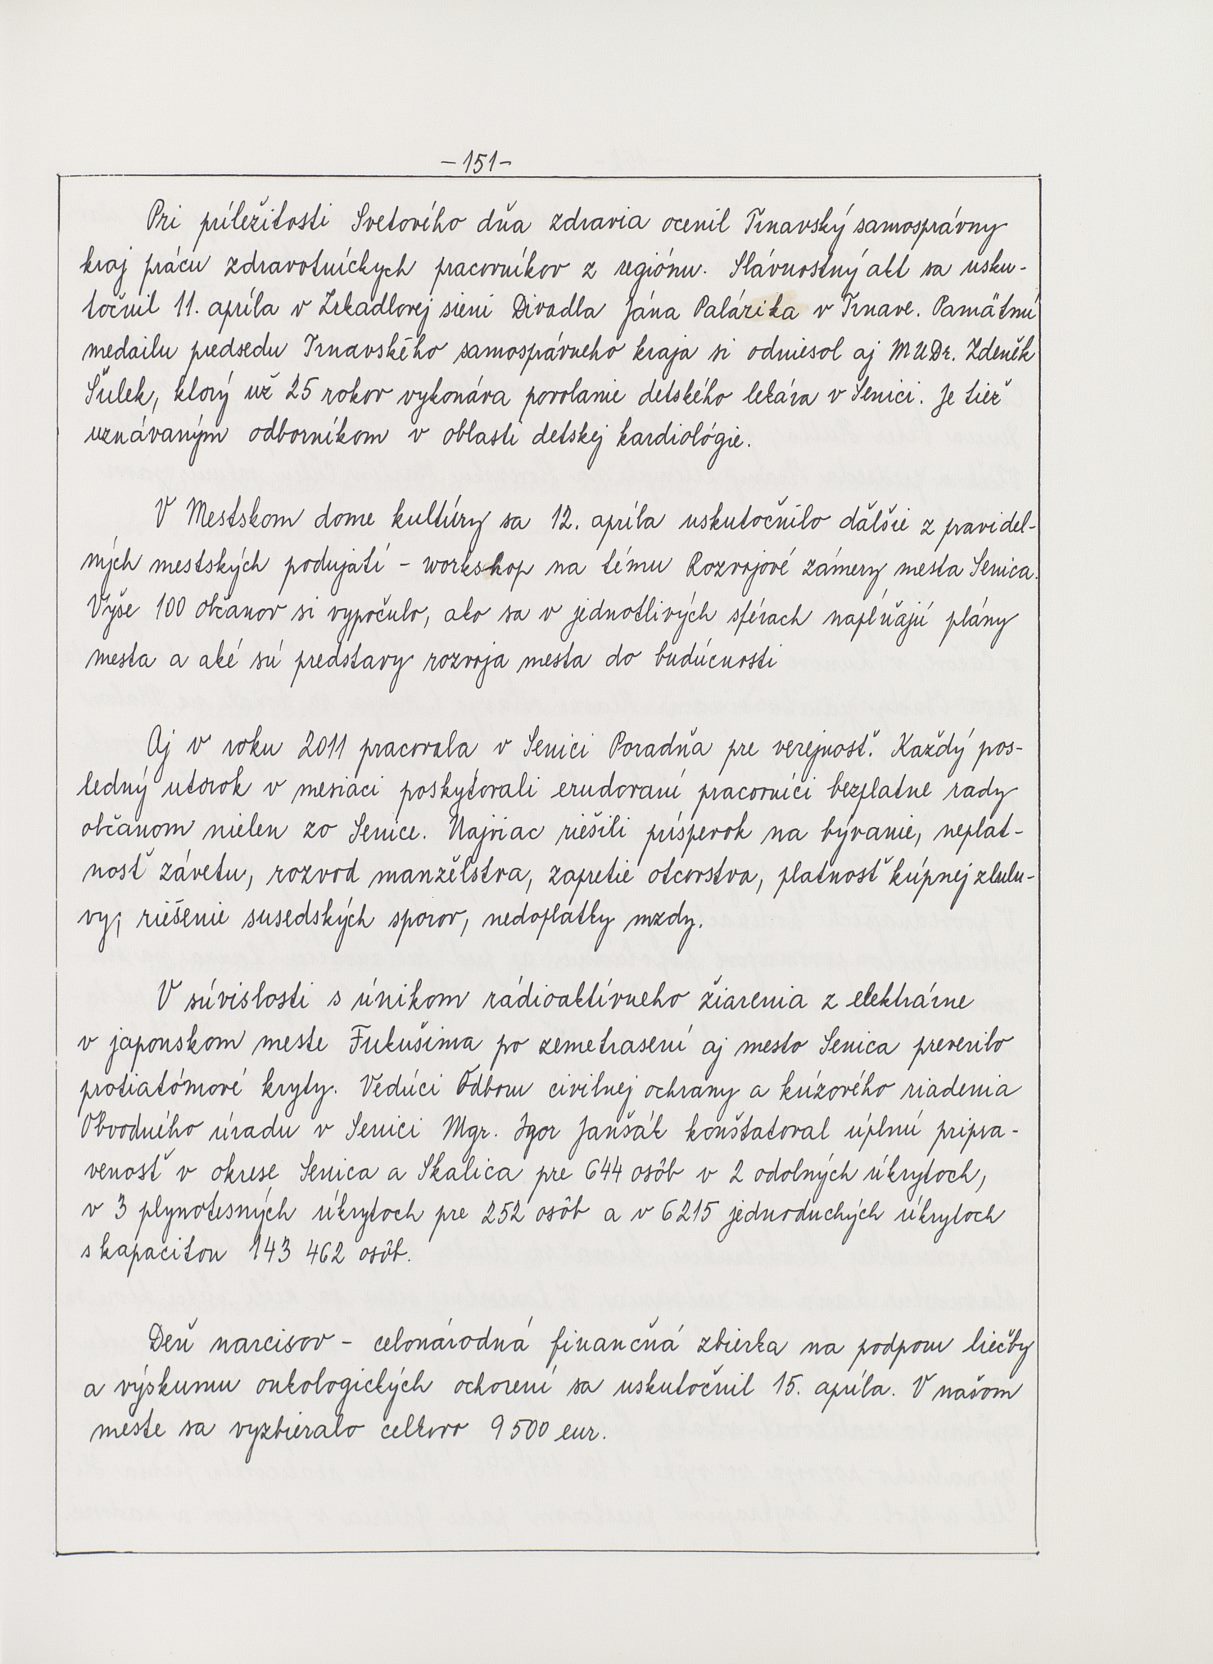 -151-
Pri príležitosti Svetového dňa zdravia ocenil Trnavský samosprávny
kraj prácu zdravotníckych pracovníkov z regiónu. Slávnostný akt sa usku-
točnil 11. apríla v Zrkadlovej sieni Divadla Jána Palárika v Trnave. Pamätnú
medailu predsedu Trnavského samosprávneho kraja si odniesol aj MUDr. Zdeněk
Šulek, ktorý už 25 rokov vykonáva povolanie detského lekára v Senici. Je tiež
uznávaným odborníkom v oblasti detskej kardiológie.
V Mestskom dome kultúry sa 12. apríla uskutočnilo ďalšie z pravidel-
ných mestských podujatí - workshop na tému Rozvojové zámery mesta Senica.
Vyše 100 občanov si vypočulo, ako sa v jednotlivých sférach napĺňajú plány
mesta a aké sú predstavy rozvoja mesta do budúcnosti
Aj v roku 2011 pracovala v Senici Poradňa pre verejnosť. Každý pos-
ledný utorok v mesiaci poskytovali erudovaní pracovníci bezplatne rady
občanom nielen zo Senice. Najviac riešili príspevok na bývanie, neplat-
nosť závetu, rozvod manželstva, zapretie otcovstva, platnosť kúpnej zlulu-
vy, riešenie susedských sporov, nedoplatky mzdy.
V súvislosti s únikom rádioaktívneho žiarenia z elektrárne
v japonskom meste Fukušima po zemetrasení aj mesto Senica preverilo
protiatómové kryty. Vedúci Odboru civilnej ochrany a krízového riadenia
Obvodného úradu v Senici Mgr. Igor Janšák konštatoval úplnú pripra-
venosť v okrese Senica a Skalica pre 644 osôb v 2 odolných úkrytoch,
v 3 plynotesných úkrytoch pre 252 osôb a v 6215 jednoduchých úkrytoch
s kapacitou 143 462 osôb.
Deň narcisov - celonárodná finančná zbierka na podporu liečby
a výskumu onkologických ochorení sa uskutočnil 15. apríla. V našom
meste sa vyzbieralo celkovo 9 500 eur.